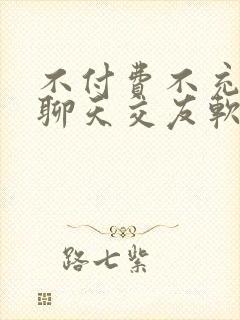 不付費不充
聊天交友軟
路七紫